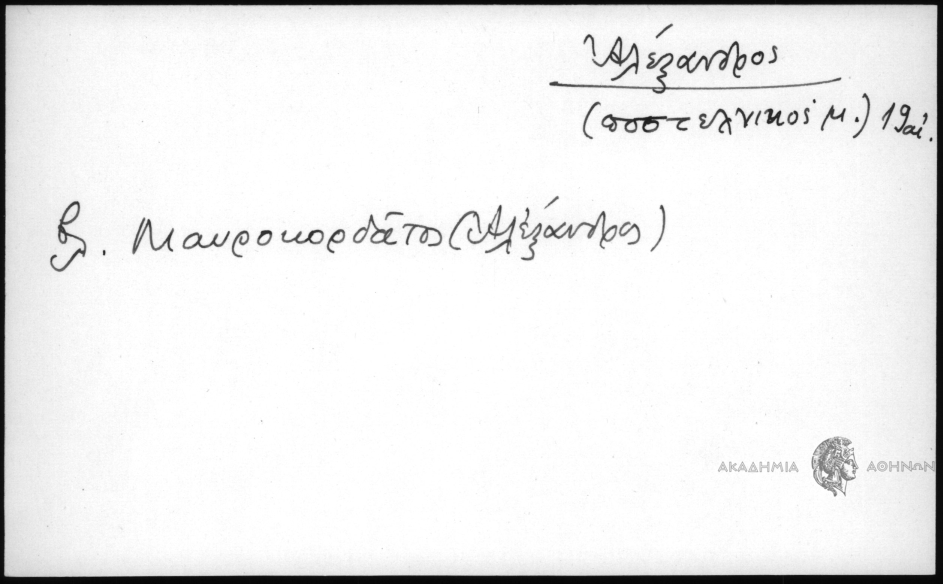 Ἀλέξανδρος
(ποστελνικος μ.) 19 αἰ.
βλ. Μαυροκορδᾶτος (Ἀλέξανδρος)
ΑΚΑΔΗΜΙΑ ΑΘΗΝΩΝ